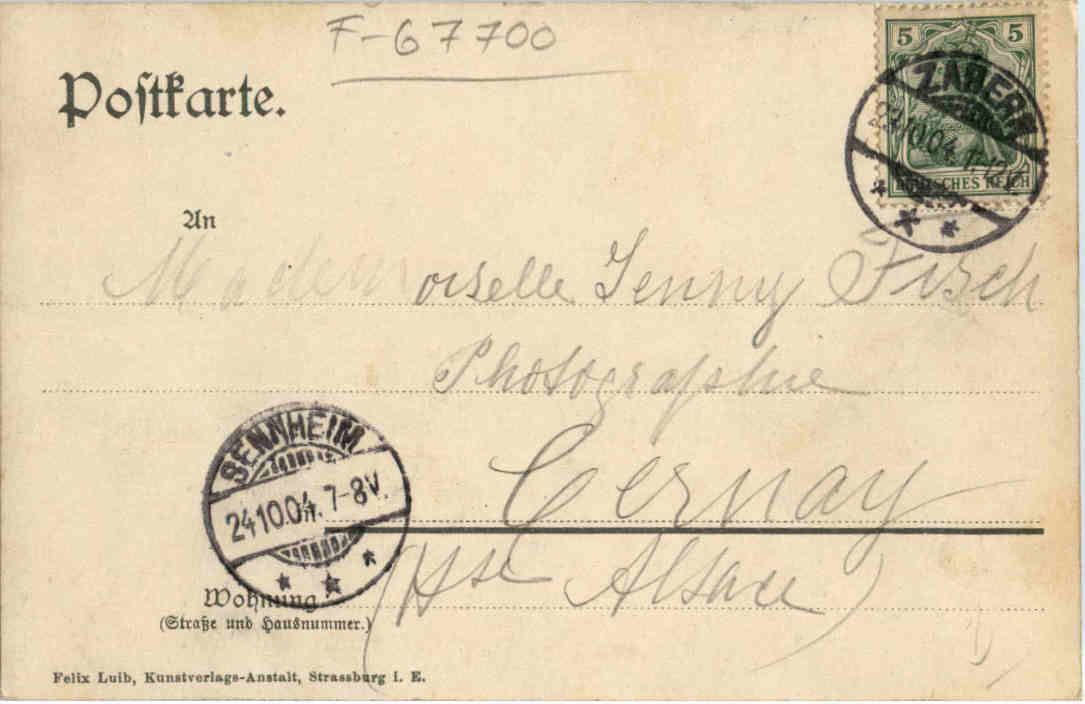 F-67700
Postkarte.
5 5
DEUTSCHES REICH
ZABERN
10.04.
An
Mademoiselle Jenny Fisch
Photographie
Cernay
(Hse Alsace)
SENNHEIM
24.10.04. 7-8V.
Wohnung
(Straße und Hausnummer.)
Felix Luib, Kunstverlags-Anstalt, Strassburg i. E.